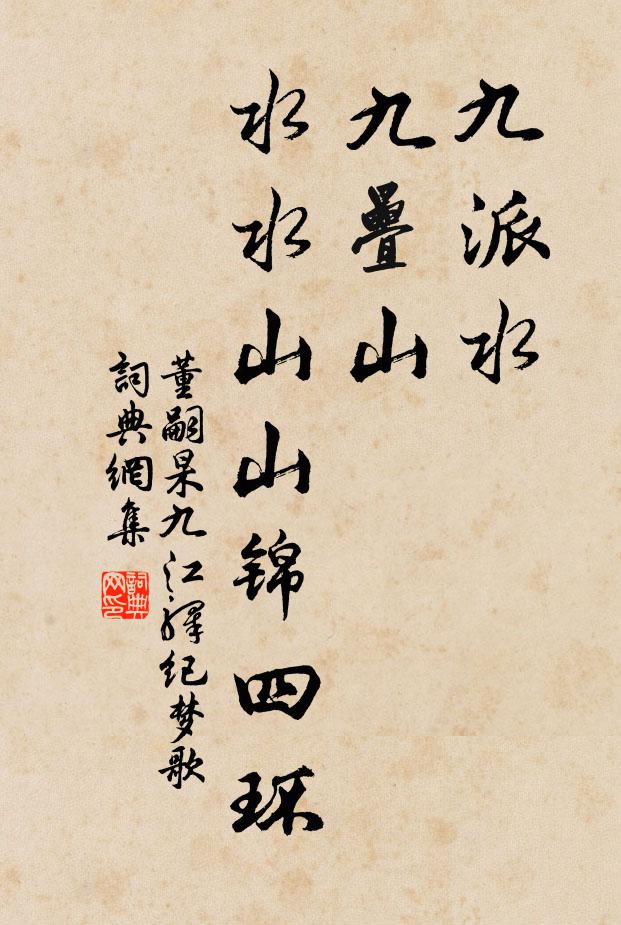 九派水
九疊山
水水山山锦四环
董嗣杲九江驛纪梦歌
詞典網集
詞典网印